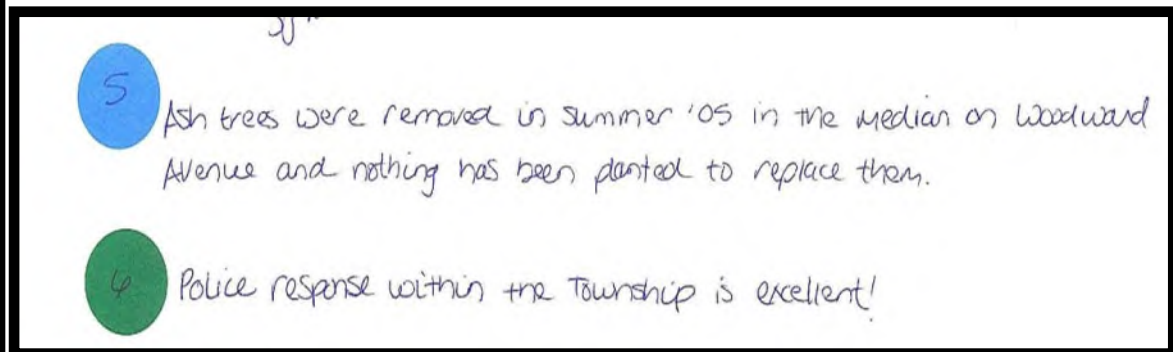 5
Ash trees were removed in summer '05 in the median on Woodward
Avenue and nothing has been planted to replace them.
6
Police response within the Township is excellent!